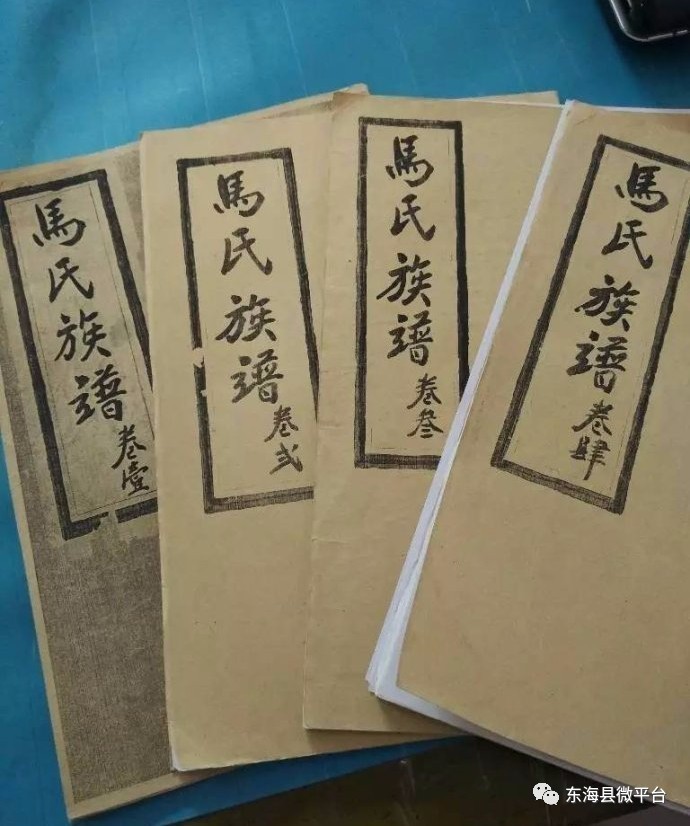 馬氏族譜
卷壹
馬氏族譜
卷弍
馬氏族譜
卷叁
馬氏族譜
卷肆
东海县微平台